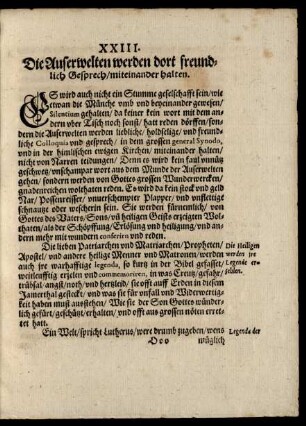 XXIII.
Die Auserwelten werden dort freund-
lich Gesprech / miteinander halten.
ES wird auch nicht ein Stumme geselschafft sein / wie
etwan die Münche vmb vnd beyeinander gewesen /
Silentium gehalten / da keiner kein wort mit dem an-
dern vber Tisch noch sonst / hatt reden dörffen / son-
dern die Auserwelten werden liebliche / holdselige / vnd freund-
liche Colloquia vnd gesprech / in dem grossen general Synodo,
vnd in der himlischen ewigen Kirchen / miteinander halten /
nicht von Narren teidungen / Denn es wird kein faul vnnütz
geschwetz / vnschampar wort aus dem Munde der Auserwelten
gehen / sondern werden von Gottes grossen Wunderwercken /
gnadenreichen wolthaten reden. Es wird da kein stock vnd geld
Nar / Possenreisser / vnuerschempter Plapper / vnd vnfletige
schnautze oder wescherin sein. Sie werden fürnemlich / von
Gottes des Vaters / Sons / vñ heiligen Geists erzeigten Wol-
thaten / als der Schöpffung / Erlösung vnd heiligung / vnd an-
dern mehr mit wundern conferirn vnd reden.
Die lieben Patriarchen vnd Matriarchen / Propheten /
Apostel / vnd andere heilige Menner vnd Matronen / werden
auch jre warhafftige legenda, so kurtz in der Bibel gefasset /
weitleufftig erzelen vnd commemoriren, in was Creutz / gefahr /
trübsal / angst / noth / vnd hertzleid / sie offt auff Erden in diesem
Jamerthal gesteckt / vnd was sie für vnfall vnd Widerwertig-
keit haben must ausstehen / Wie sie der Son Gottes wünder-
lich gefürt / geschützt / erhalten / vnd offt aus grossen nöten erret-
tet hatt.
Die Heiligen
werden jre
Legende er-
zelen.
Ein Welt / spricht Lutherus / were drumb zugeben / wens
Legenda der
Ooo
müglich